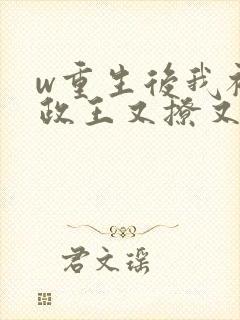 w重生后我被
政王又撩又
君文瑶